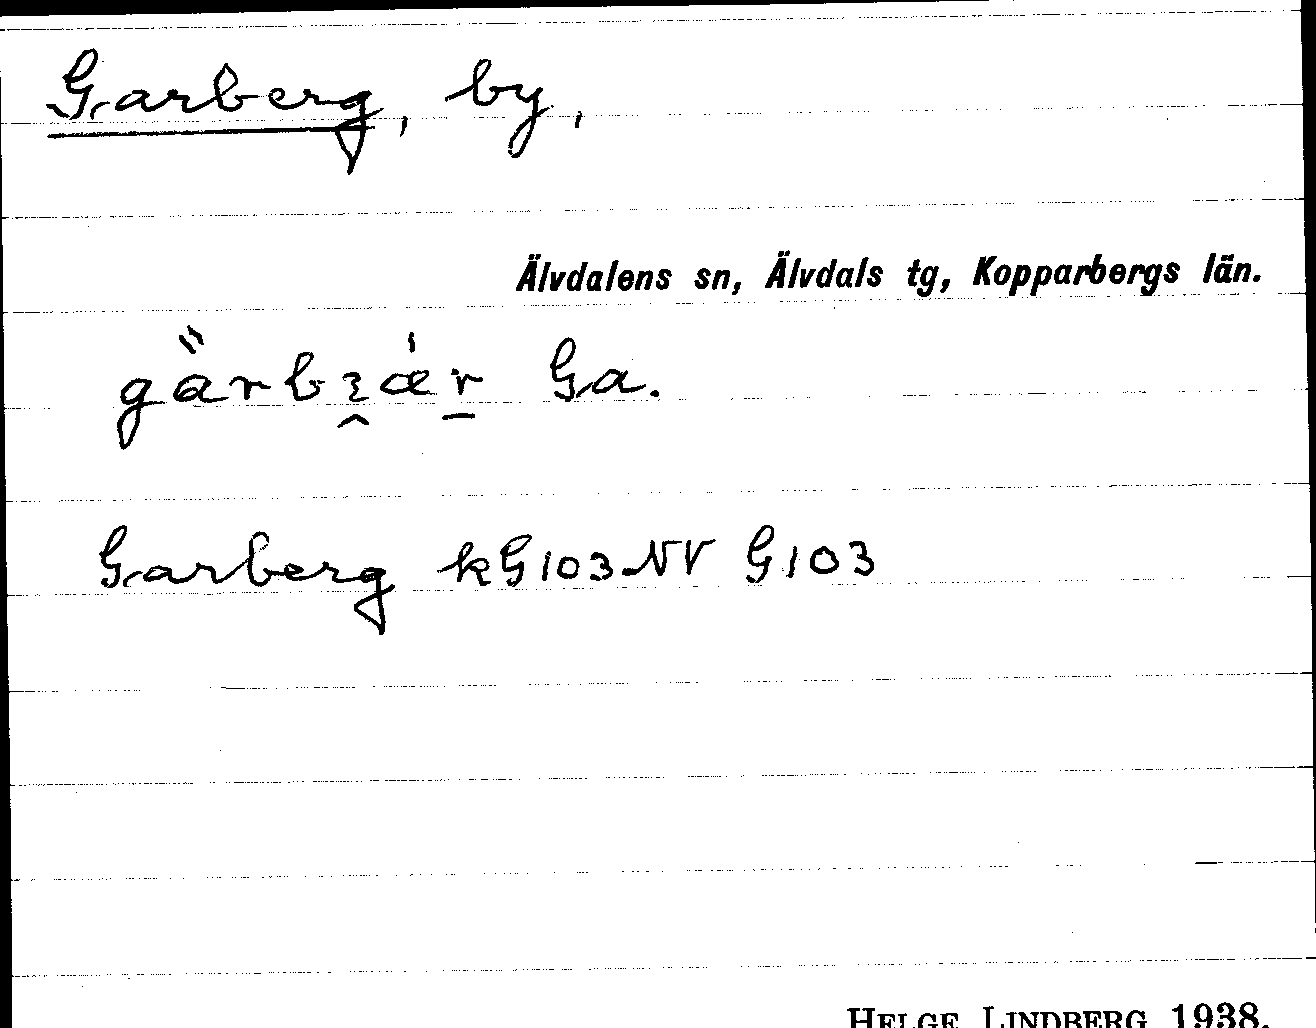 Garberg, by,
Älvdalens sn, Älvdals tg, Kopparbergs län.
Ga.
Garberg kG103NV G103
HELGE LINDBERG 1938.